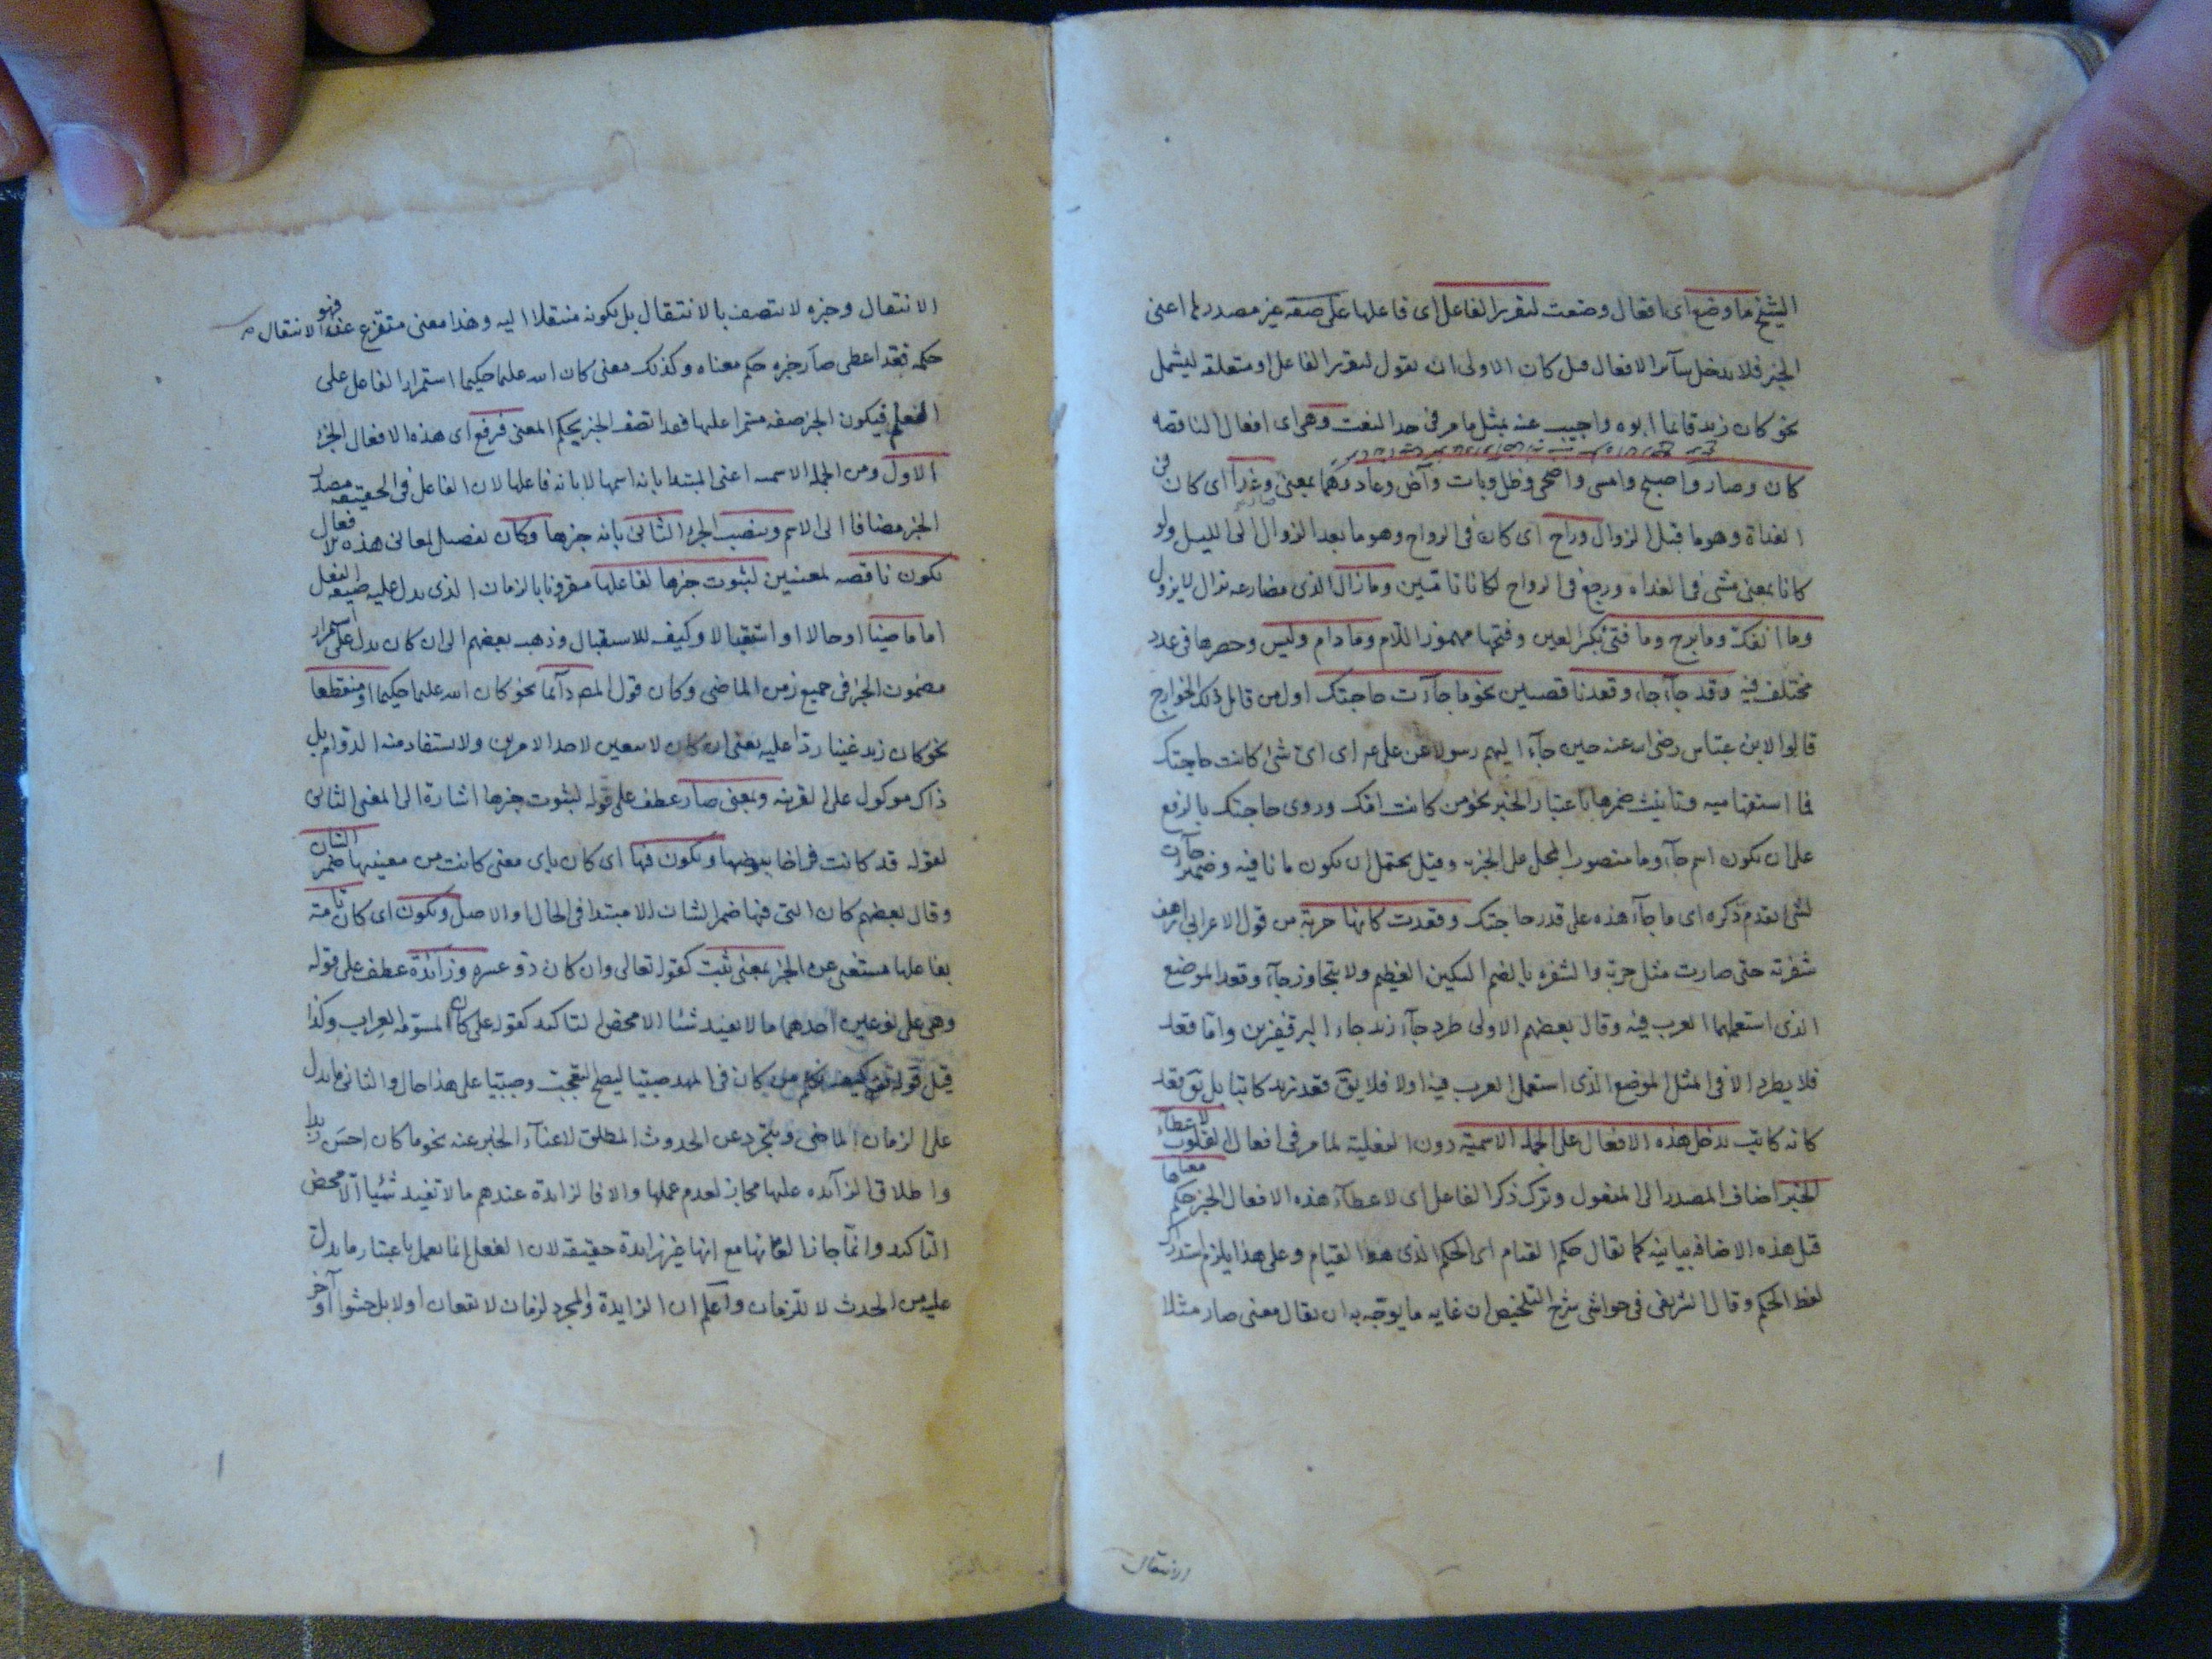 الشيخ ما وضع اى افعال وضعت لتقرير الفاعل اى فاعلها على صفة غير مصدرها اعنى
الخبر فلا يدخل سائر الافعال قيل كان الاولى ان يقول لتقرير الفاعل او متعلقه ليشمل
نحو كان زيد قائما ابوه واجيب عنه بمثل ما مر فى حد النعت وهى اى افعال الناقصة
كان وصار واصبح وامسى واضحى وظل وبات وآض وعاد وهما بمعنى وغدا اى كان فى
الغداة وهو ما قبل الزوال وراح اى كان فى الرواح وهو ما بعد الزوال الى الليل ولو
كانا بمعنى مشى فى الغداه ورجع فى الرواح لكانا تامّين وما زال الذى مضارعه يزال لا يزول
وما انفك وما برح وما فتئ بكسر العين وفتحها مهموز اللام وما دام وليس وحصرها فى عدد
مختلف فيه وقد جآء جاء وقعد ناقصين نحو ما جآءت حاجتك اول من قائل ذلك الخوارج
قالوا لابن عبّاس رضى الله عنه حين جآء اليهم رسولا عن على عم اى اىّ شئ كانت حاجتك
فما استفهاميه وتانيث ضمرها باعتبار الخبر نحو من كانت امّك وروى حاجتك بالرفع
على ان يكون اسم جآء وما منصوب المحل على الخبريه وقيل يحتمل ان يكون ما نافيه وضمير جآءت
لشئ تقدم ذكره اى ما جآء هذه على قدر حاجتك وقعدت كانها حربة من قول الاعرابى ارهف
شفرته حتى صارت مثل حربة والشفره بالضم السكين العظيم ولا يتجاوز جآء وقعد الموضع
الذى استعملهما العرب فيه وقال بعضهم الاولى طرد جآء زيد جاء البر قفيزين وامّا قعد
فلا يطرد الا فى المثل الموضع الذى استعمل العرب فيه اولا فلا يقٓ قعد زيد كاتبا بل يقٓ قعد
كانه كاتب يدخل هذه الافعال على الجملة الاسمية دون الفعلية لما مر فى افعال القلوب لاعطآء
الخبر اضاف المصدر الى المفعول وترك ذكر الفاعل اى لاعطآء هذه الافعال الخبر حكم معناها
قيل هذه الاضافه بيانيه كما يقال حكم القيام اى الحكم الذى هو القيام وعلى هذا يلزم استدراك
لفظ الحكم وقال الشريف فى حواشى شرح التلخيص ان غايه ما يوجّه به ان يقال معنى صار مثلا
الانتقال
الانتقال وخبره لا يتصف بالانتقال بل بكونه منتقلا اليه وهذا معنى متفرع عن الانتقال فهو
حكمه فقد اعطى صار خبره حكم معناه وكذلك معنى كان الله عليما حكيما استمرار الفاعل على
العلم فيكون الخبر صفة مستمرا عليها فقد اتصف الخبر بحكم المعنى فرفع اى هذه الافعال الجزء
الاول ومن الجملة الاسميه اعنى المبتدا بانه اسمها لا بانه فاعلها لان الفاعل فى الحقيقه مصدر
الخبر مضافا الى الاسم وينصب الجزء الثانى بانه خبرها وكان تفصيل لمعانى هذه الافعال
يكون ناقصه لمعنيين لثبوت خبرها لفاعلها مقرونا بالزمان الذى يدل عليه صيغه الفعل
اما ماضيا او حالا او استقبالا وكيف للاستقبال وذهب بعضهم الى ان كان يدل على استمرار
مضمون الخبر فى جميع زمن الماضى وكان قول المص دآئما نحو كان الله عليما حكيما او منقطعا
نحو كان زيد غنيا ردّا عليه يعنى ان كان لا يتعين لاحد الامرين ولا يستفاد منه الدوام بل
ذاك موكول على القرينه وبمعنى صار عطف على قوله لثبوت خبرها اشارة الى المعنى الثانى
لقوله قد كانت فراخا بيوضها ويكون فيها اى كان باى معنى كانت من معنييها ضمير الشان
وقال بعضهم كان التى فيها ضمير الشان لا مبتدا فى الحال او الاصل ويكون اى كان تامة
بفاعلها مستغنى عن الخبر بمعنى ثبت كقوله تعالى وان كان ذو عسره وزائدة عطف على قوله
وهى على نوعين احدهما ما لا يفيد شيئا الا محض التاكيد كقوله على كان المسوّمة العراب وكذا
قيل قوله تعٓ كيف نكلم من كان فى المهد صبيّا ليصح التعجب وصبيّا على هذا حال والثانى ما يدل
على الزمان الماضى ويتجرد عن الحدوث المطلق لاغنآء الخبر عنه نحو ما كان احسن زيدا
واطلاق الزآئده عليها مجاز لعدم عملها والا فالزايدة عندهم ما لا تفيد شيئا الّا محض
التاكيد وانّما جاز الغآئها مع انها غير زايدة حقيقة لان الفعل انما يعمل باعتبار ما يدل
عليه من الحدث لا للزمان واعلم ان الزايدة والمجرد لزمان لا يقعان اولا بل حشوا او آخر